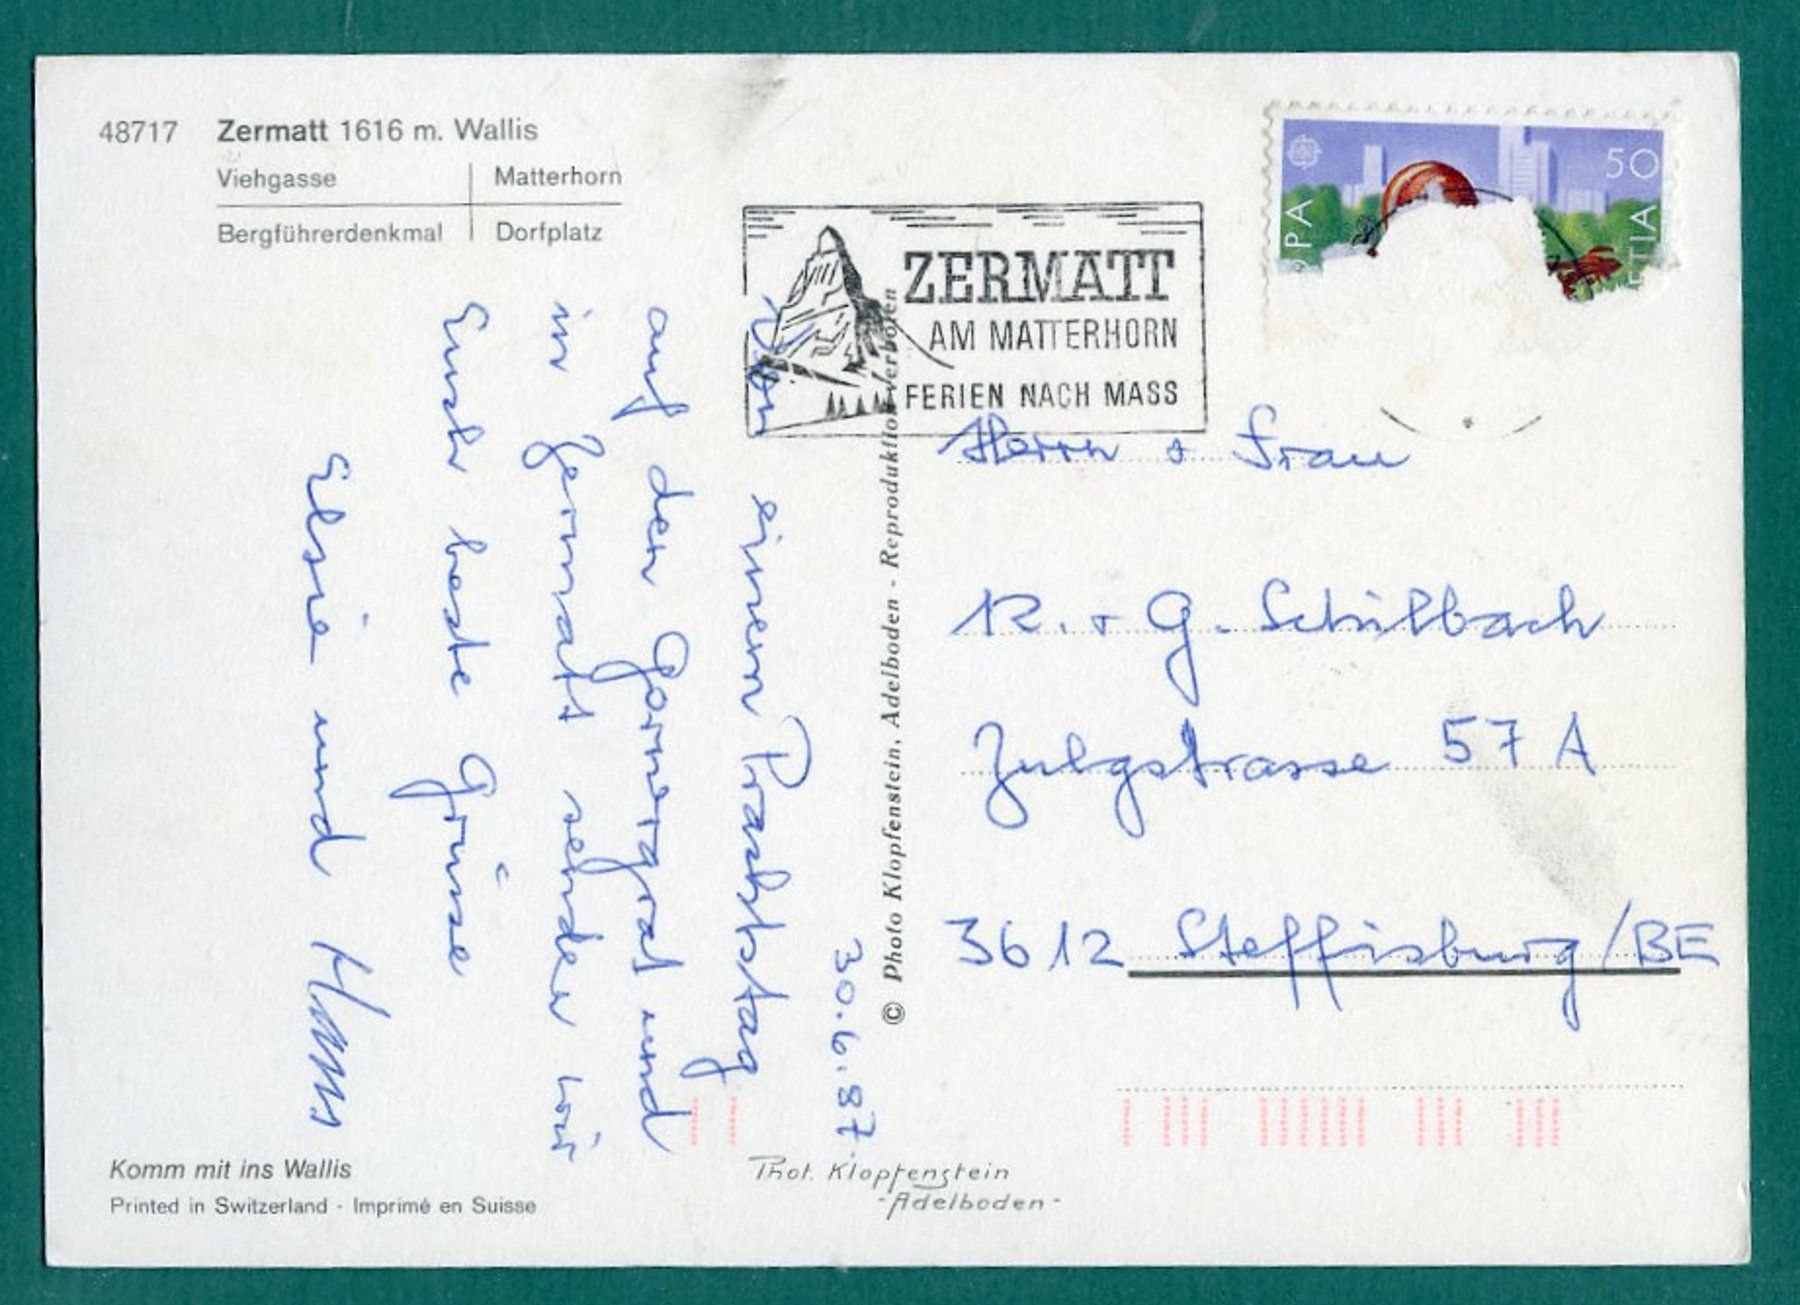 48717 Zermatt 1616 m. Wallis
Viehgasse Matterhorn
Bergführerdenkmal Dorfplatz
ZERMATT
AM MATTERHORN
FERIEN NACH MASS
50
30.6.87.
Von einem Prachtstag
auf den Gornergrat und
in Zermatt senden wir
Euch beste Grüsse
Elsie und Hans
© Photo Klopfenstein, Adelboden - Reproduktion verboten
Herrn + Frau
R. + G. Schilbach
Zulgstrasse 57 A
3612 Steffisburg/BE
Komm mit ins Wallis
Printed in Switzerland - Imprimé en Suisse
Phot. Klopfenstein
-Adelboden-